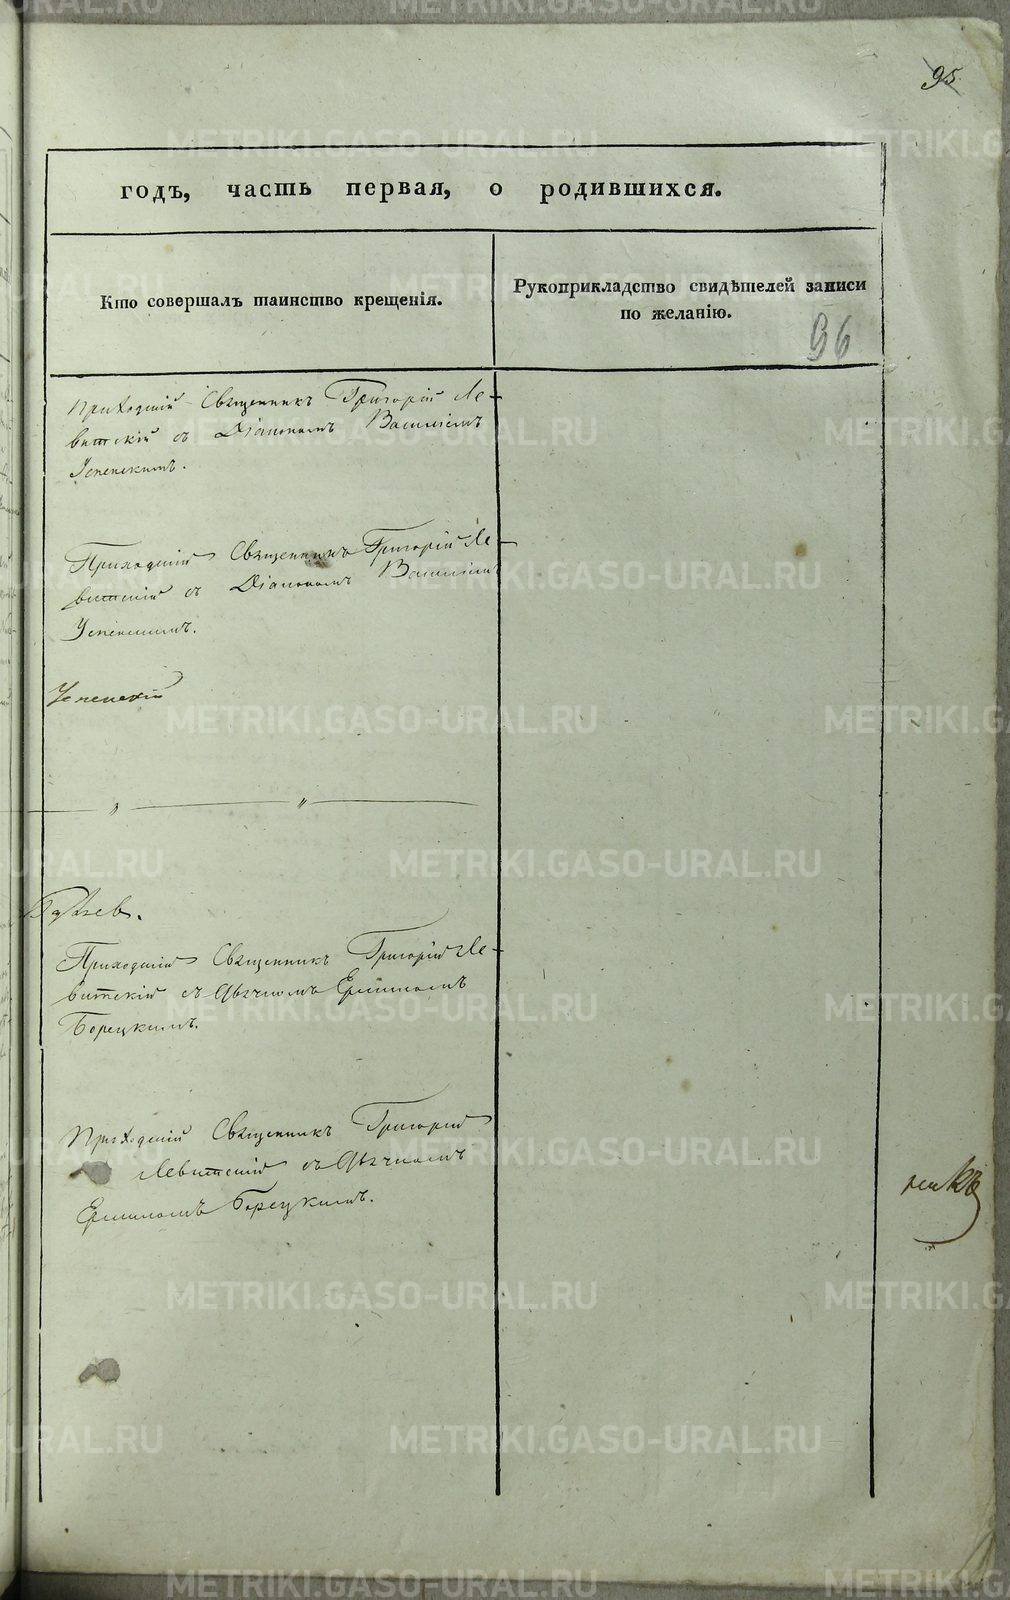 95
годъ, часть первая, о родившихся.
Кто совершалъ таинство крещенія.
Рукоприкладство свидѣтелей записи
по желанію.
96
Приходскій Священникъ Григорій Ле-
витскій съ Діакономъ Василіемъ
Успенскимъ.
Приходскій Священникъ Григорій Ле-
витскій съ Діакономъ Василіем
Успенскимъ.
Успенскій
Приходскій Священникъ Григорій Ле-
витскій съ Дьячкомъ
Борецкимъ.
Приходскій Священникъ Григорій
Левитскій съ Дьячкомъ
Борецкимъ.
METRIKI.GASO-URAL.RU